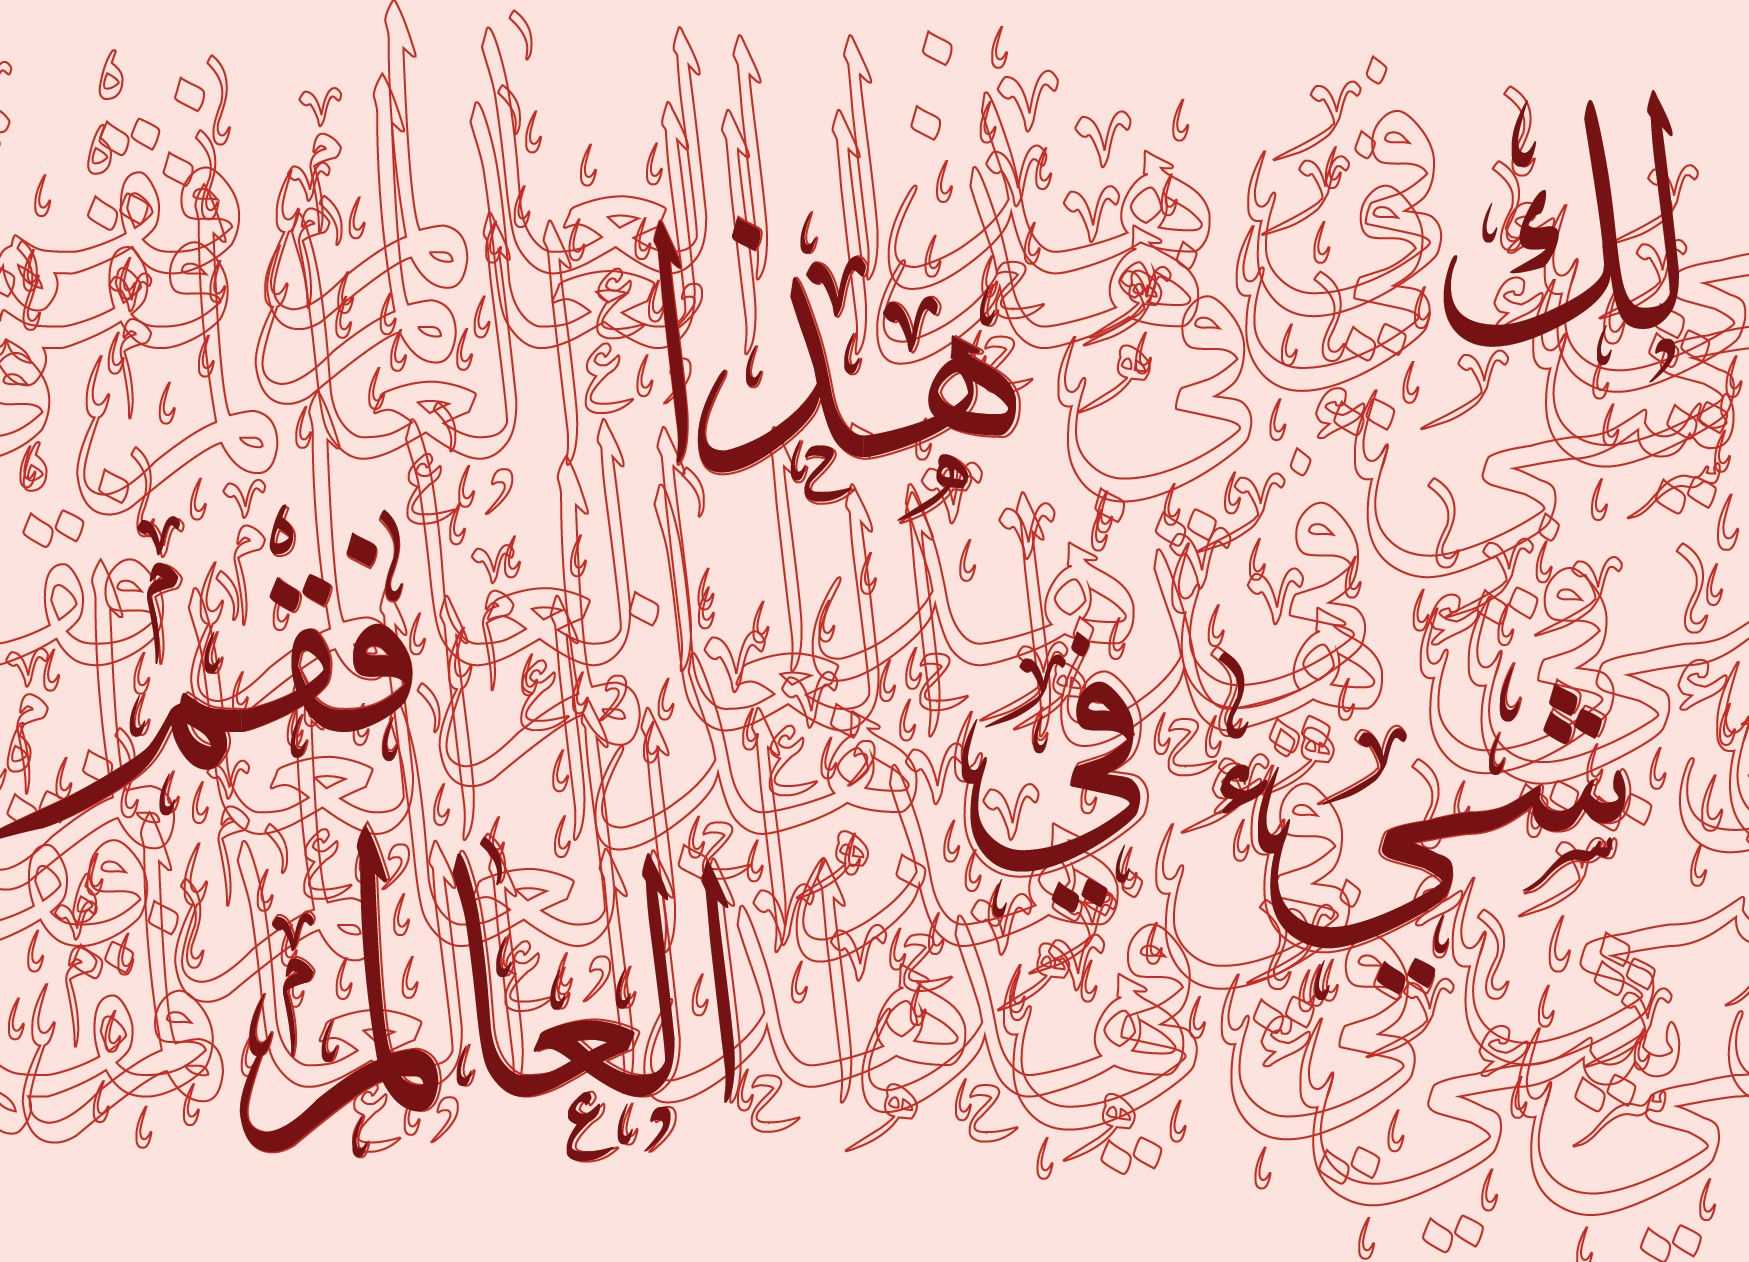 لك شيء في هذا العالم فقم